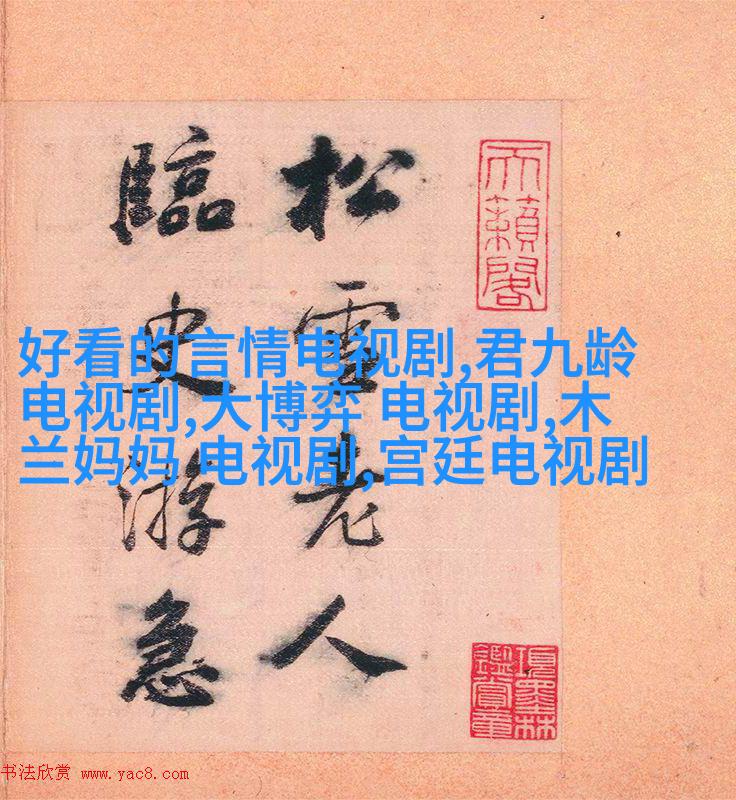 天籟閣
松雪老人
臨史游急
好看的言情电视剧,君九龄
电视剧,大博弈 电视剧,木
兰妈妈 电视剧,宫廷电视剧
項墨林
鑑賞章
书法欣赏 www.yac8.com